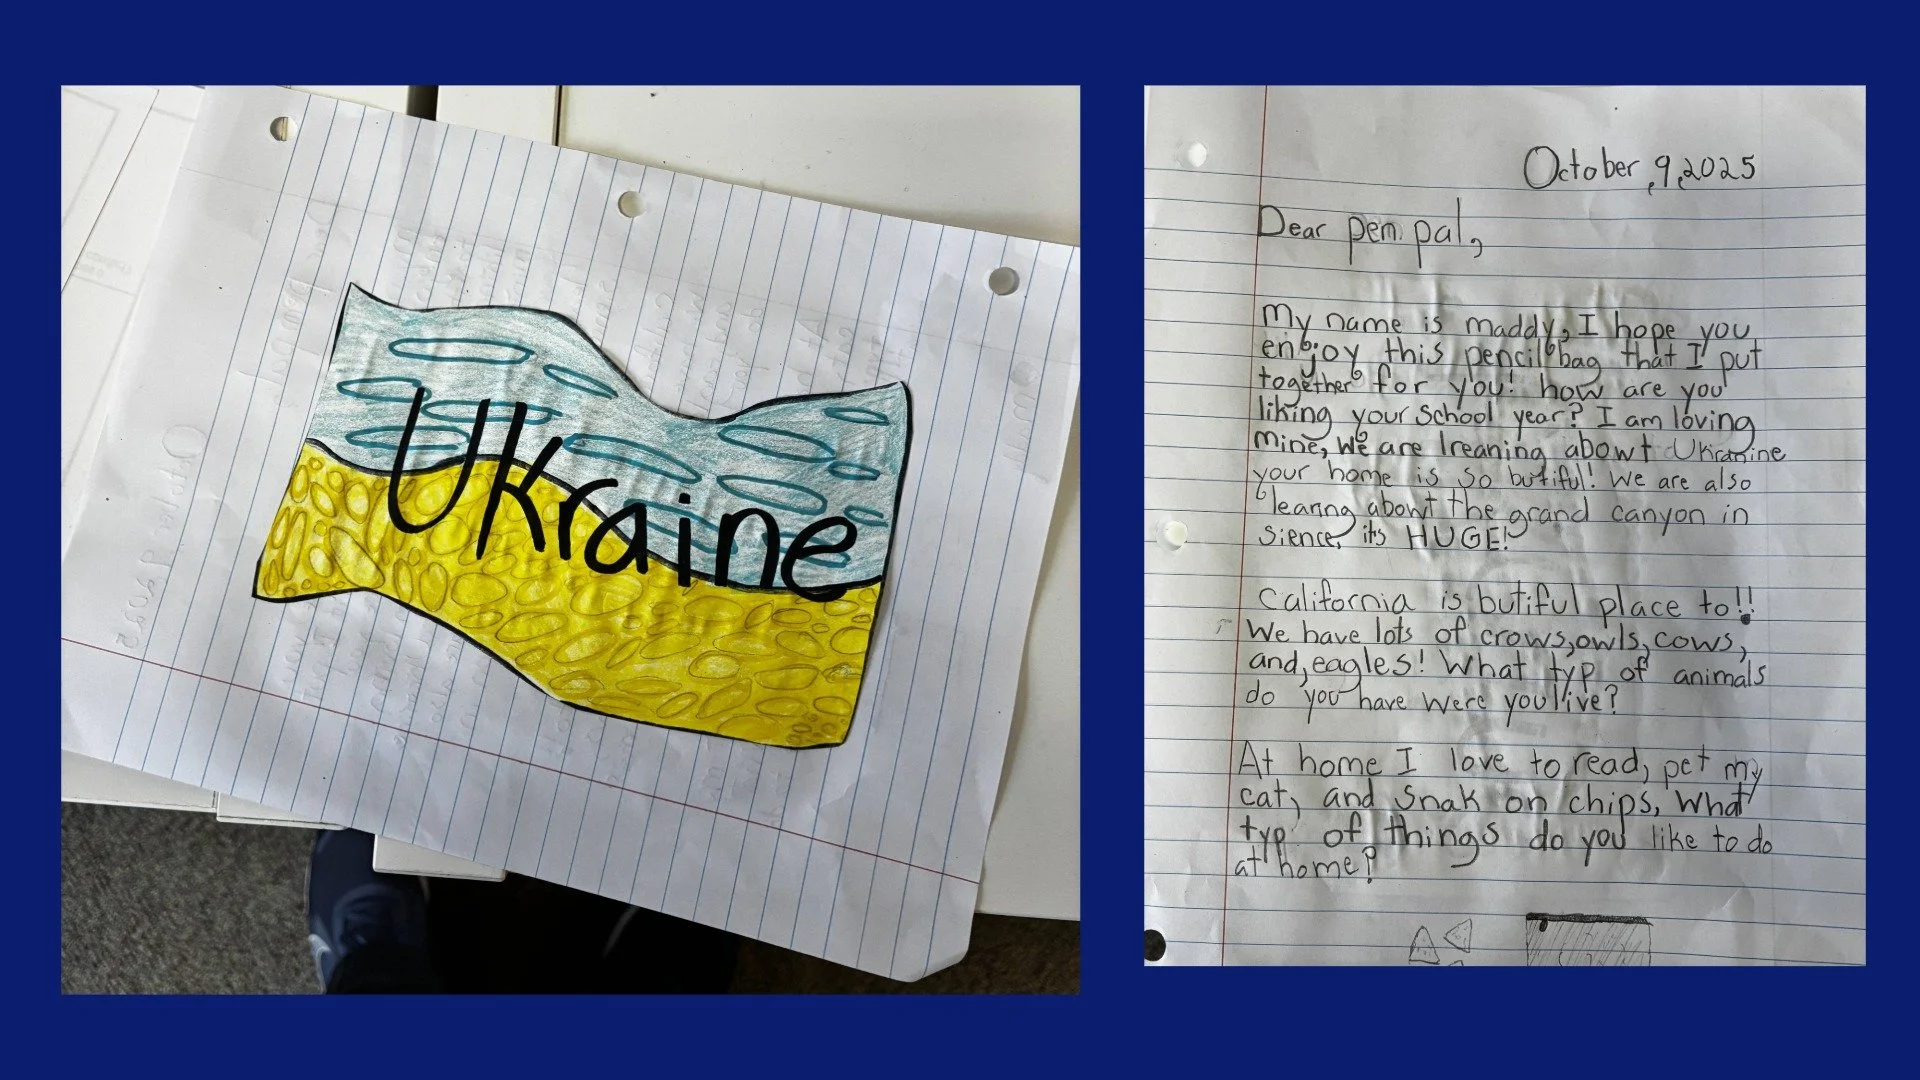 Ukraine
October, 9, 2025
Dear pen pal,
My name is maddy, I hope you
enjoy this pencil bag that I put
together for you! how are you
liking your school year? I am loving
mine, We are lreaning abowt Ukranine
your home is so butiful! We are also
learing abowt the grand canyon in
sience, its HUGE!
California is butiful place to!!
We have lots of crows, owls, cows,
and, eagles! What typ of animals
do you have were you live?
At home I love to read, pet my
cat, and snak on chips, What
typ of things do you like to do
at home?